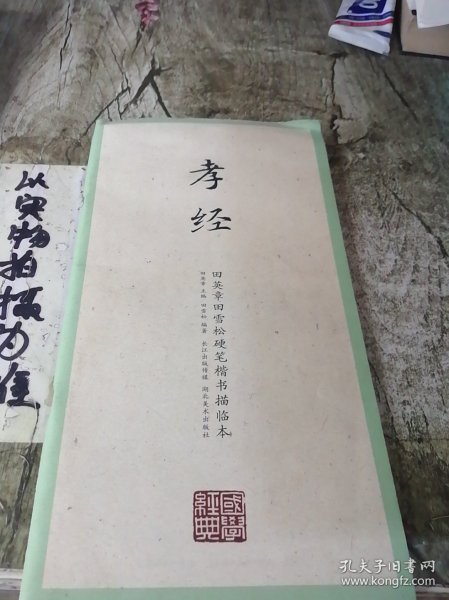 孝经
田英章田雪松硬笔楷书描临本
田英章 主编 田雪松 编著 长江出版传媒 湖北美术出版社
國學經典
以实物拍摄为准
孔夫子旧书网
www.kongfz.com